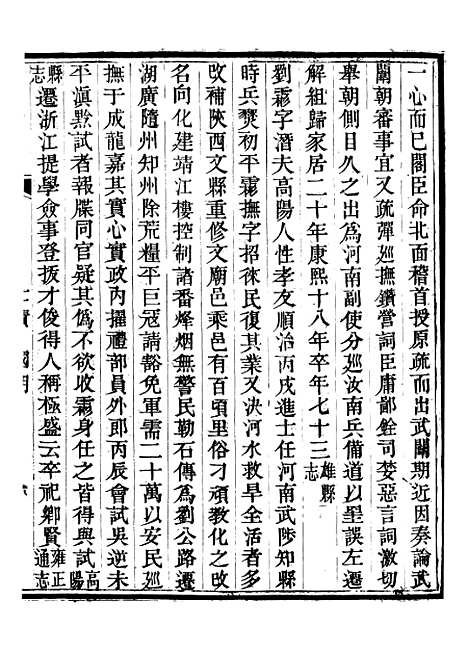 一心而已閣臣命北面稽首授原疏而出武闈期近因奏論武
闈朝審事宜又疏彈廵撫鑽營詞臣庸鄙銓司婪惡言詞激切
舉朝側目久之出爲河南副使分廵汝南兵備道以里誤左遷
解組歸家居二十年康熙十八年卒年七十三雄縣志
劉霦字潛夫高陽人性孝友順治丙戌進士任河南武陟知縣
時兵燹初平霦撫字招徠民復其業又決河水救旱全活者多
改補陝西文縣重修文廟邑乘邑有百頃里俗刁頑教化之改
名向化建靖江樓控制諸番烽烟無警民勒石傳爲劉公路遷
湖廣隨州知州除荒糧平巨寇請豁免軍需二十萬以安民廵
撫于成龍嘉其實心實政內擢禮部員外郎丙辰會試吳逆未
平滇黔試者報牒同官疑其僞不欲收霦身任之皆得與試高陽
縣志遷浙江提學僉事登拔才俊得人稱極盛云卒祀鄉賢雍正通志